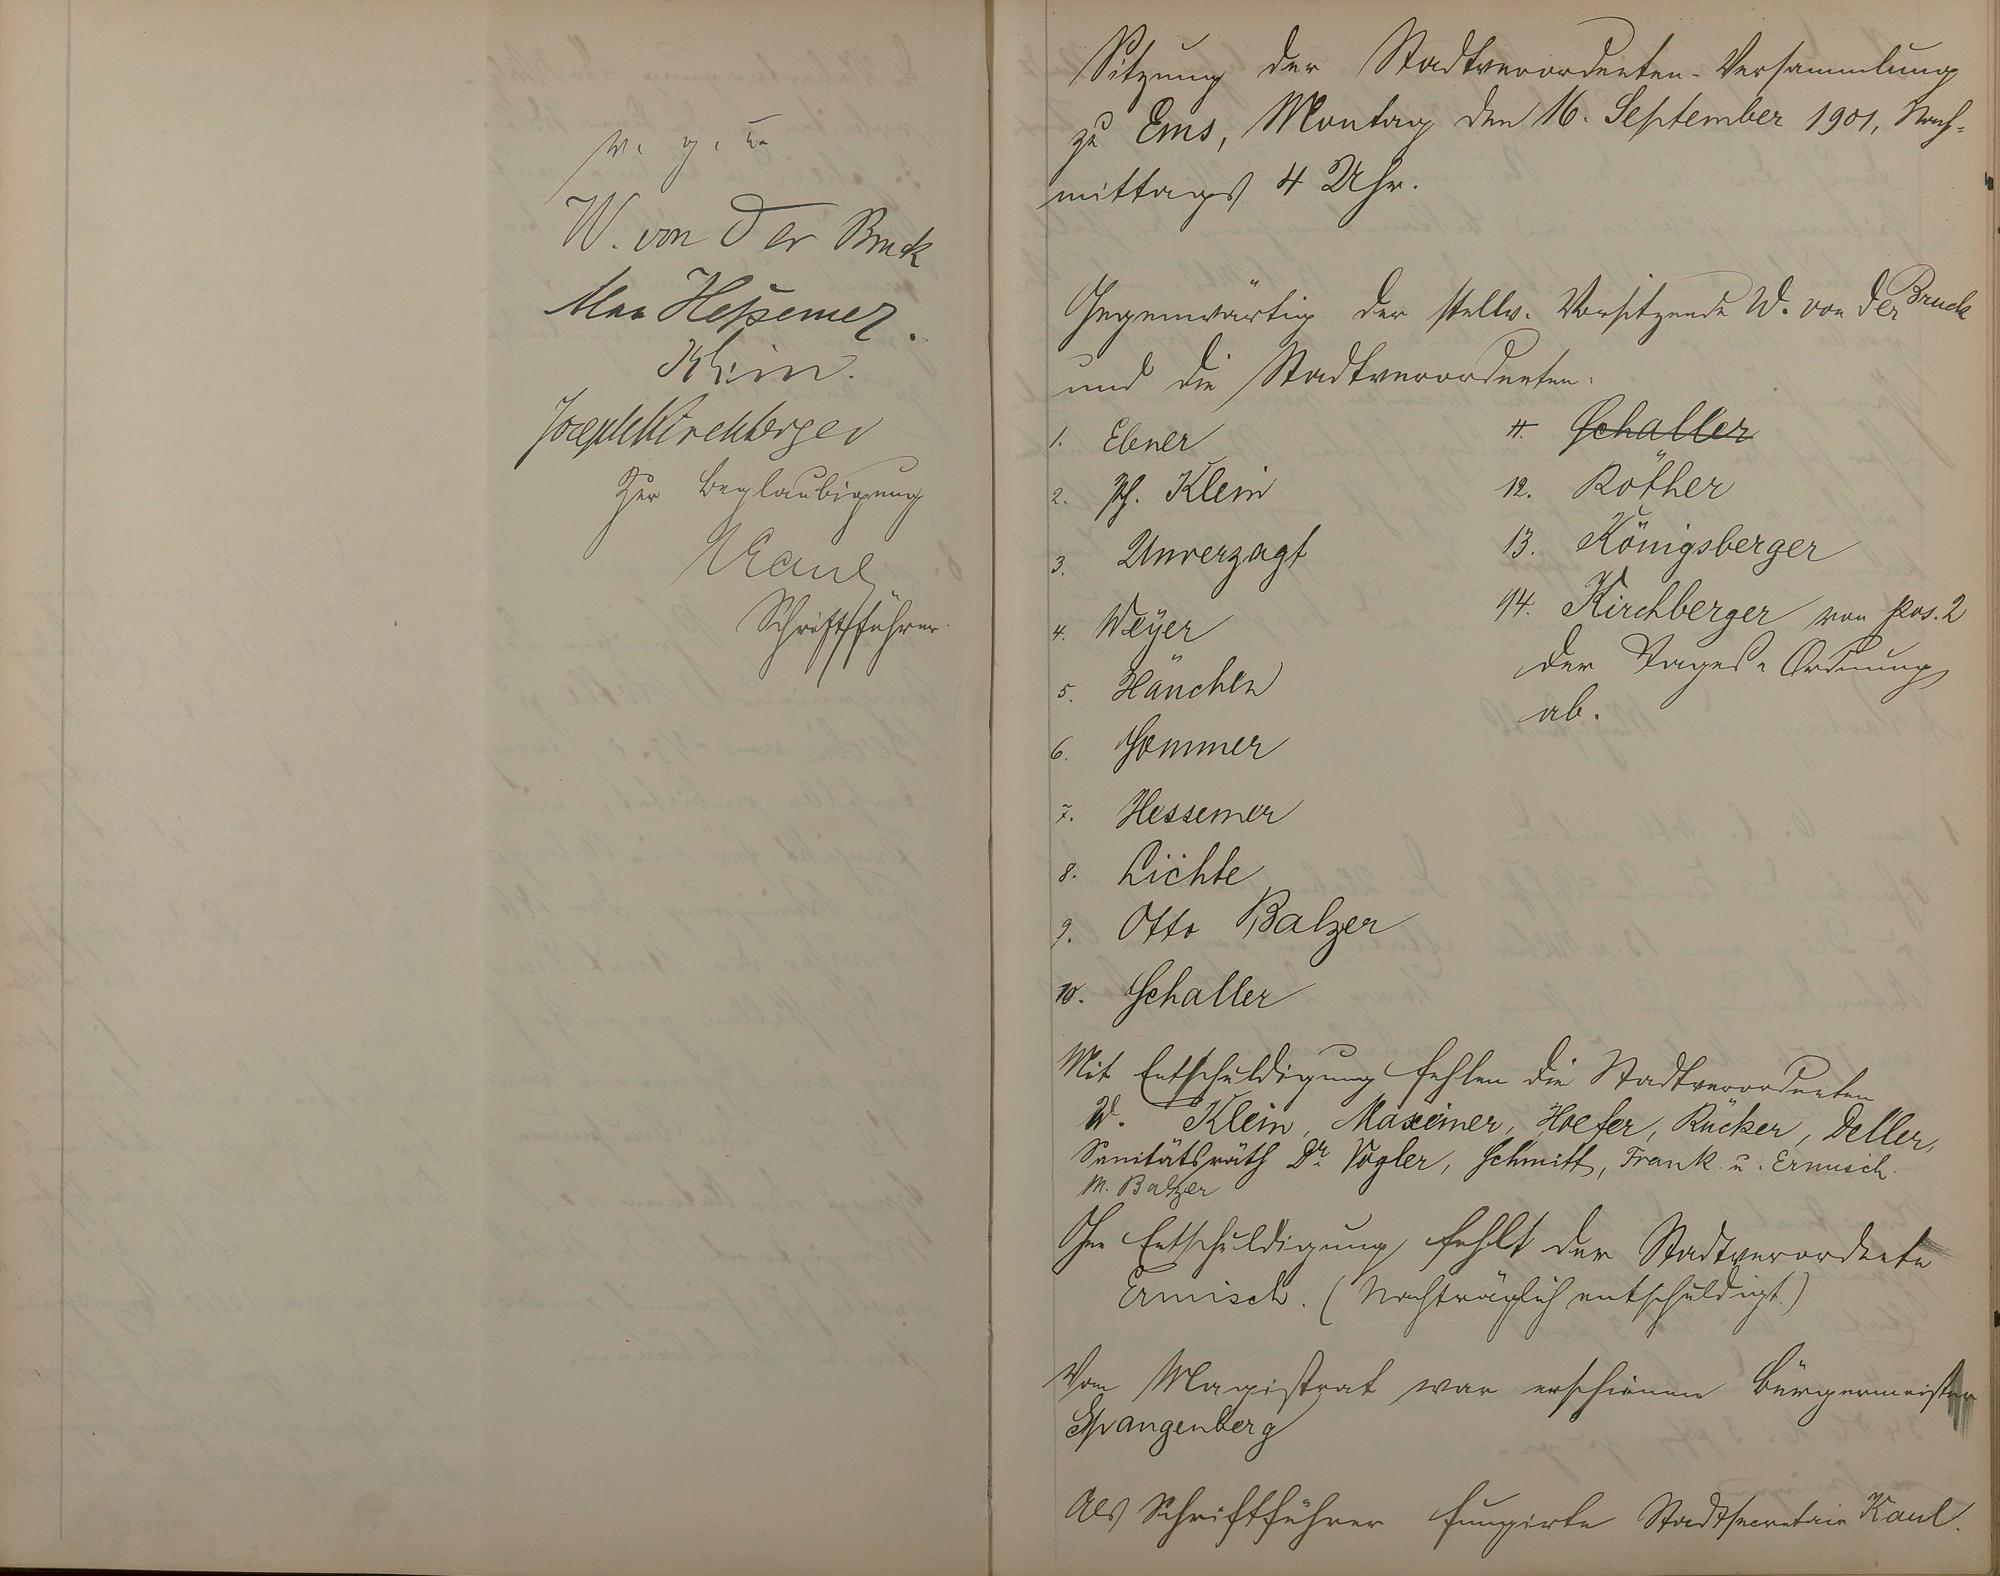 v. g. u.
W. von der Bruck
Max Hessemer.
Klein.
Joseph Kirchberger
Zur Beglaubigung
Kaul
Schriftführer.
Sitzung der Stadtverordneten-Versammlung
zu Ems, Montag den 16. September 1901, Nach-
mittags 4 Uhr.
Gegenwärtig der stellv. Vorsitzende W. von der Bruck
und die Stadtverordneten:
1. Ebner
2. Ph. Klein
3. Unverzagt
4. Weyer
5. Hänchen
6. Sommer
7. Hessemer
8. Lichte
9. Otto Balzer
10. Schaller
11. Schaller
12. Röther
13. Königsberger
14. Kirchberger von pos. 2
der Tages-Ordnung
ab.
Mit Entschuldigung fehlen die Stadtverordneten
W. Klein, Maxeiner, Hoefer, Rücker, Deller,
Sanitätsrath Dr. Vogler, Schmitt, Frank u. Ermisch.
M. Balzer
Ohne Entschuldigung fehlt der Stadtverordnete
Ermisch. (Nachträglich entschuldigt.)
Vom Magistrat war erschienen Bürgermeister
Spangenberg
Als Schriftführer fungirte Stadtsecretair Kaul.